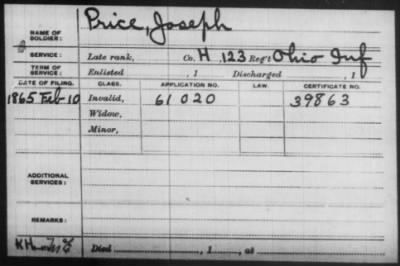 NAME OF SOLDIER: Price, Joseph
SERVICE: Late rank, Co. H, 123 Reg't Ohio Inf
TERM OF SERVICE: Enlisted , 1 Discharged , 1
DATE OF FILING. CLASS. APPLICATION NO. LAW. CERTIFICATE NO.
1865 Feb 10 Invalid, 61 020 39863
Widow,
Minor,
ADDITIONAL SERVICES:
REMARKS:
Died , 1 , at